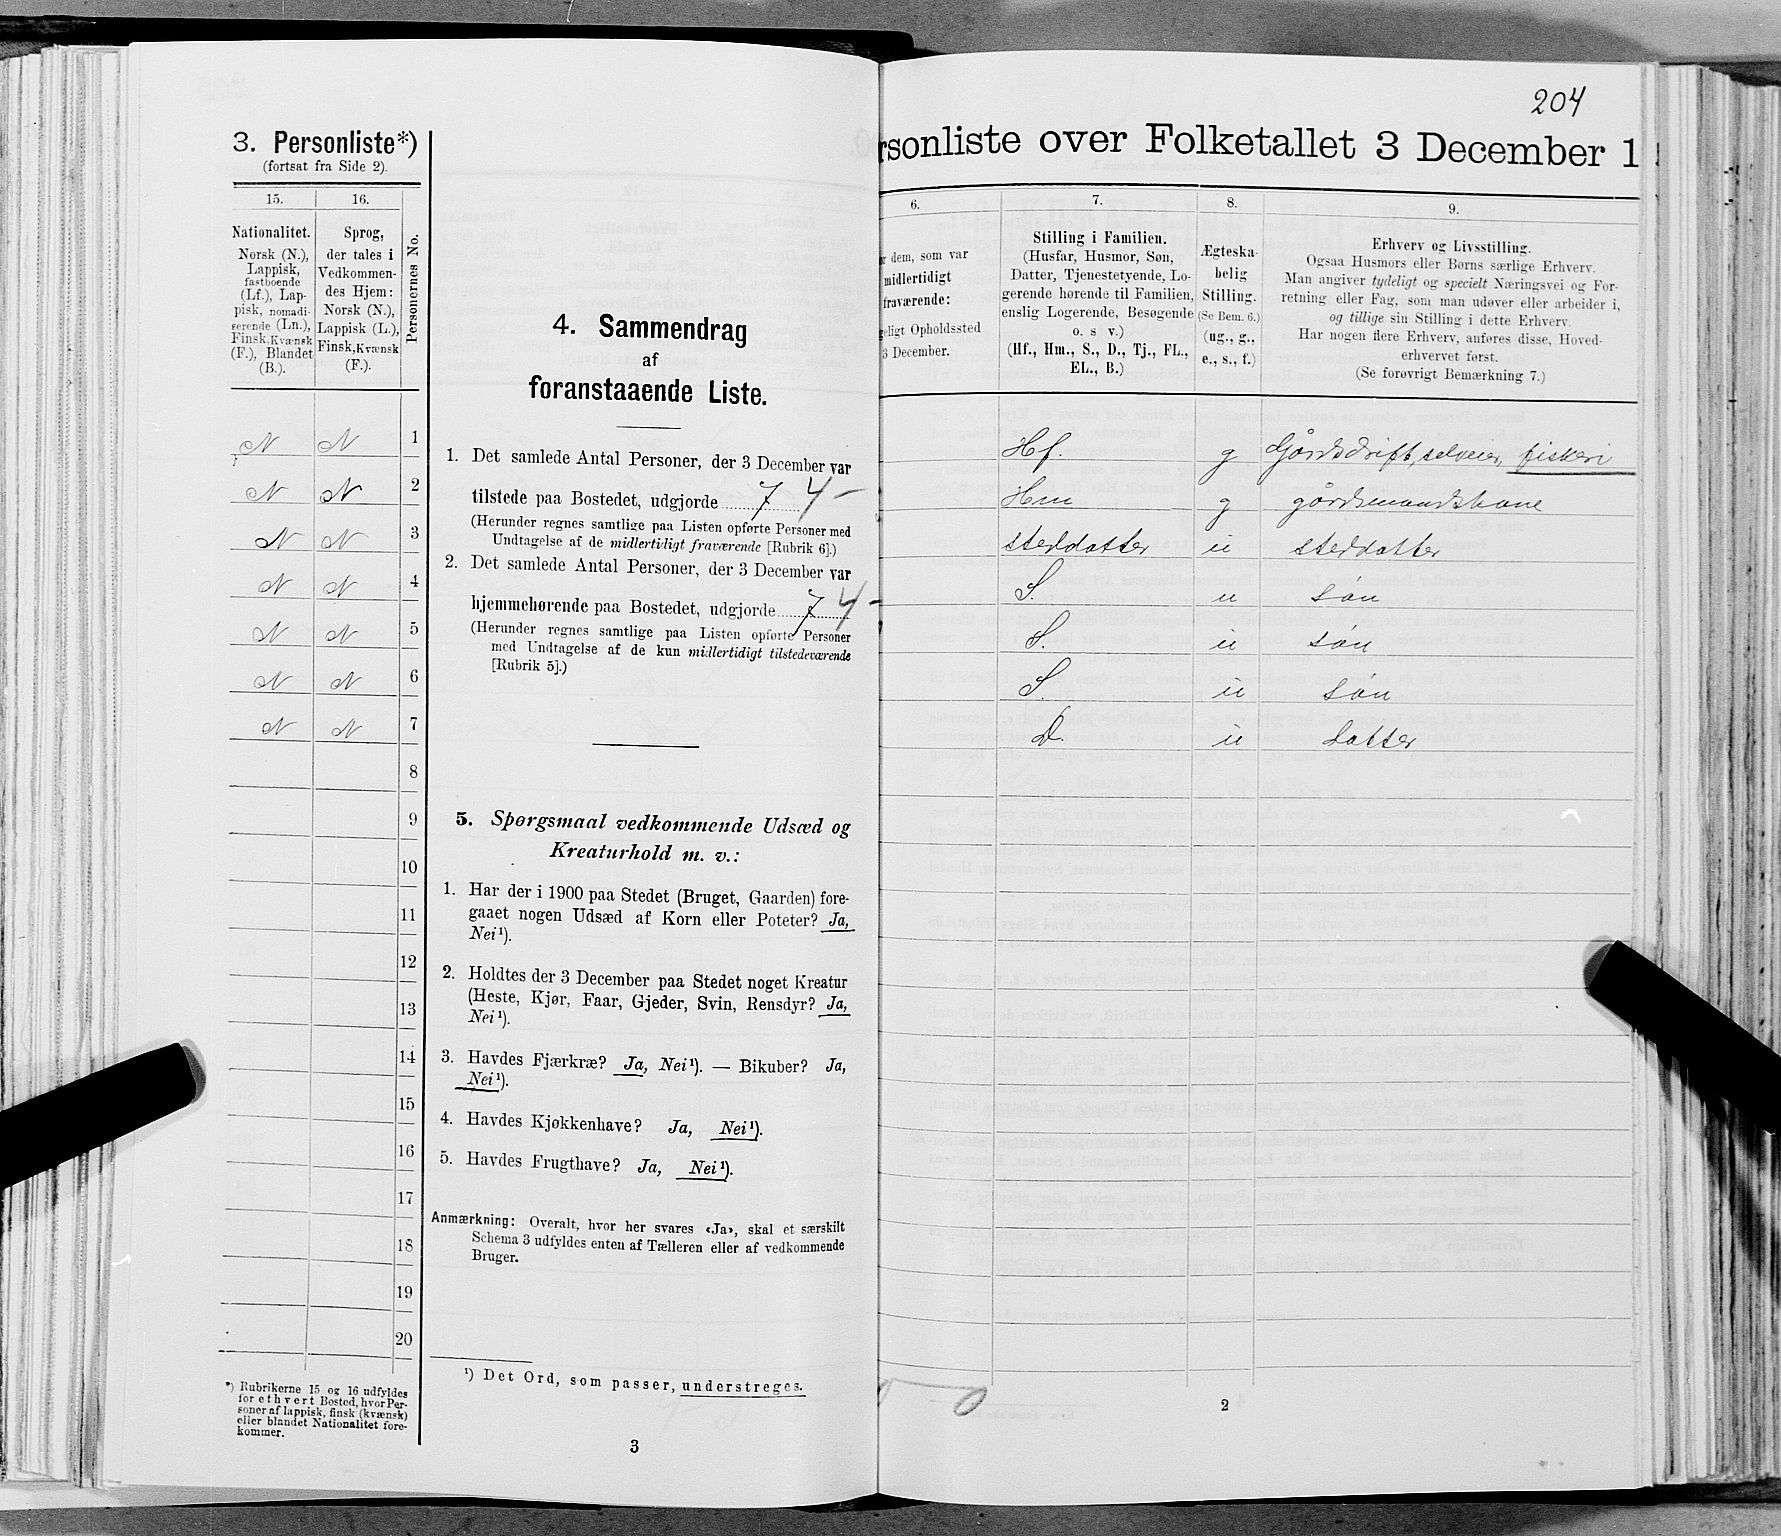 3. Personliste*)
(fortsat fra Side 2).
15.
Nationalitet.
Norsk (N.),
Lappisk,
fastboende
(Lf.), Lap-
pisk, nomadi-
serende (Ln.),
Finsk,Kvænsk
(F.), Blandet
(B.).
16.
Sprog,
der tales i
Vedkommen-
des Hjem:
Norsk (N.),
Lappisk (L.),
Finsk,Kvænsk
(F.).
Personernes No.
N N 1
N N 2
N N 3
N N 4
N N 5
N N 6
N N 7
8
9
10
11
12
13
14
15
16
17
18
19
20
*) Rubrikerne 15 og 16 udfyldes
for ethvert Bosted, hvor Per-
soner af lappisk, finsk (kvænsk)
eller blandet Nationalitet fore-
kommer.
4. Sammendrag
af
foranstaaende Liste.
1. Det samlede Antal Personer, der 3 December var
tilstede paa Bostedet, udgjorde 7 4 -
(Herunder regnes samtlige paa Listen opførte Personer med
Undtagelse af de midlertidigt fraværende [Rubrik 6].)
2. Det samlede Antal Personer, der 3 December var
hjemmehørende paa Bostedet, udgjorde 7 4 -
(Herunder regnes samtlige paa Listen opførte Personer
med Undtagelse af de kun midlertidigt tilstedeværende
[Rubrik 5].)
5. Spørgsmaal vedkommende Udsæd og
Kreaturhold m. v.:
1. Har der i 1900 paa Stedet (Bruget, Gaarden) fore-
gaaet nogen Udsæd af Korn eller Poteter? Ja,
Nei¹).
2. Holdtes der 3 December paa Stedet noget Kreatur
(Heste, Kjør, Faar, Gjeder, Svin, Rensdyr? Ja,
Nei¹).
3. Havdes Fjærkræ? Ja, Nei¹). — Bikuber? Ja,
Nei¹).
4. Havdes Kjøkkenhave? Ja, Nei¹).
5. Havdes Frugthave? Ja, Nei¹).
Anmærkning: Overalt, hvor her svares «Ja», skal et særskilt
Schema 3 udfyldes enten af Tælleren eller af vedkommende
Bruger.
¹) Det Ord, som passer, understreges.
3
204
rsonliste over Folketallet 3 December 1
6.
r dem, som var
midlertidigt
fraværende:
geligt Opholdssted
3 December.
7.
Stilling i Familien.
(Husfar, Husmor, Søn,
Datter, Tjenestetyende, Lo-
gerende hørende til Familien,
enslig Logerende, Besøgende
o. s v.)
(Hf., Hm., S., D., Tj., FL.,
EL., B.)
8.
Ægteska-
belig
Stilling.
(Se Bem. 6.)
(ug., g.,
e., s., f.)
9.
Erhverv og Livsstilling.
Ogsaa Husmors eller Børns særlige Erhverv.
Man angiver tydeligt og specielt Næringsvei og For-
retning eller Fag, som man udøver eller arbeider i,
og tillige sin Stilling i dette Erhverv.
Har nogen flere Erhverv, anføres disse, Hoved-
erhvervet først.
(Se forøvrigt Bemærkning 7.)
Hf. g Gårdsdrift, selveier, fiskeri
Hm g gårdsmandskone
steddatter u steddatter
S. u søn
S. u søn
S. u søn
D. u datter
2